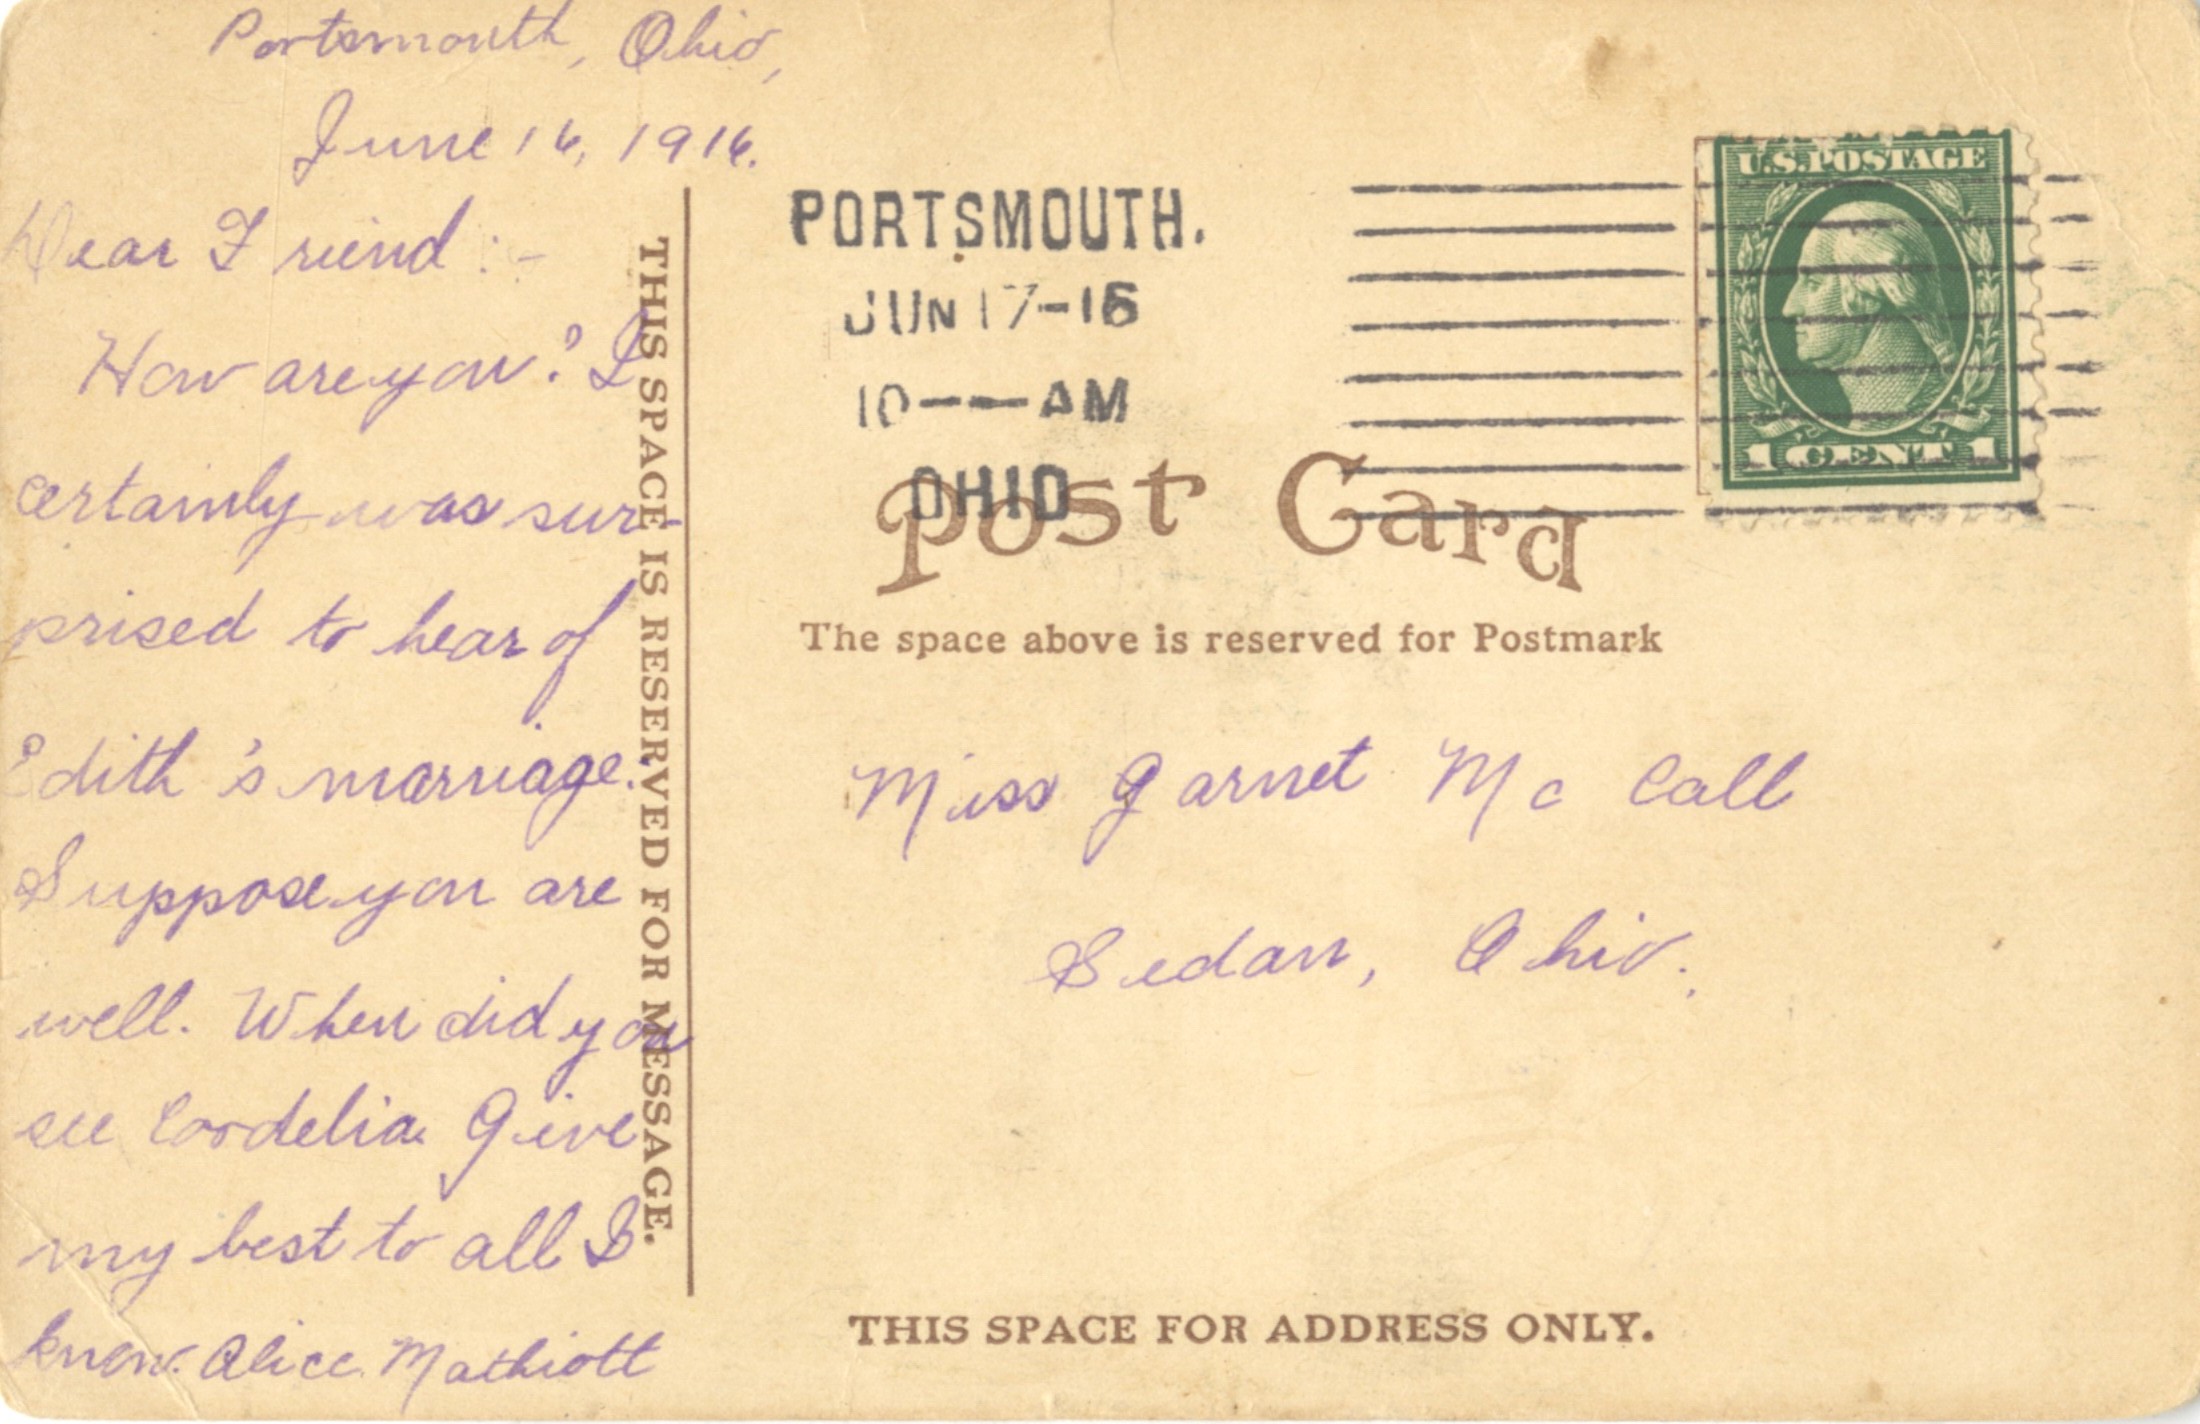 Portsmouth, Ohio,
June 16, 1916.
Dear Friend :-
How are you? I
certainly was sur-
prised to hear of
Edith's marriage.
Suppose you are
well. When did you
see Cordelia. Give
my best to all I
know. Alice Mathiott
THIS SPACE IS RESERVED FOR MESSAGE.
PORTSMOUTH.
JUN 17-16
10--AM
OHIO
U.S. POSTAGE
1 CENT 1
Post Card
The space above is reserved for Postmark
Miss Garnet Mc Call
Sedan, Ohio.
THIS SPACE FOR ADDRESS ONLY.